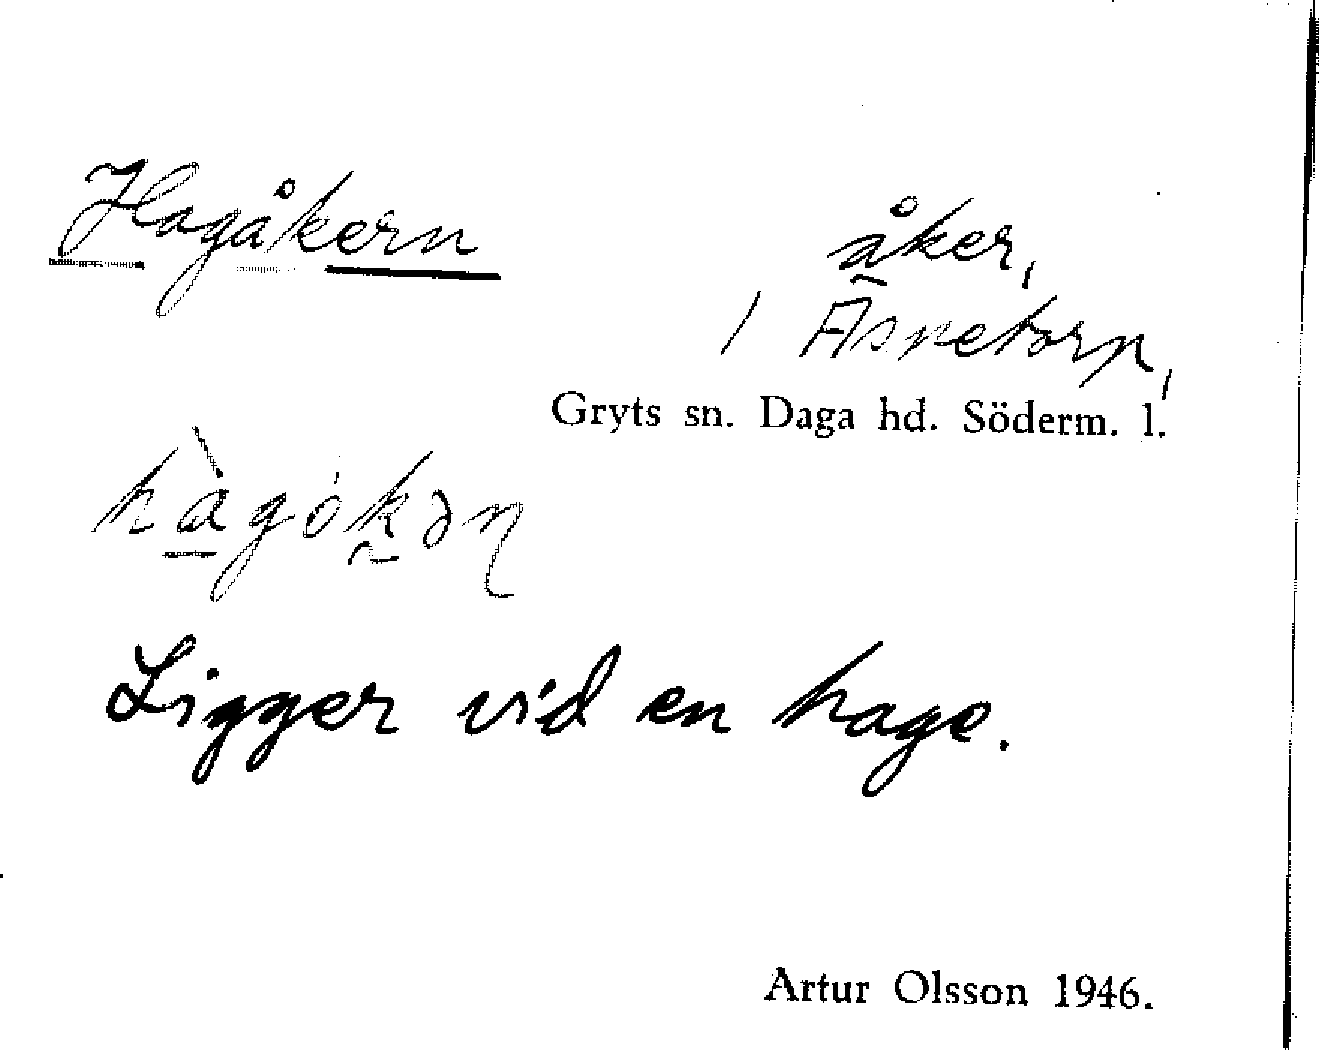 Hagåkern
åker,
/ Äsnetorp,
Gryts sn. Daga hd. Söderm. l.
hàgókən
Ligger vid en hage.
Artur Olsson 1946.